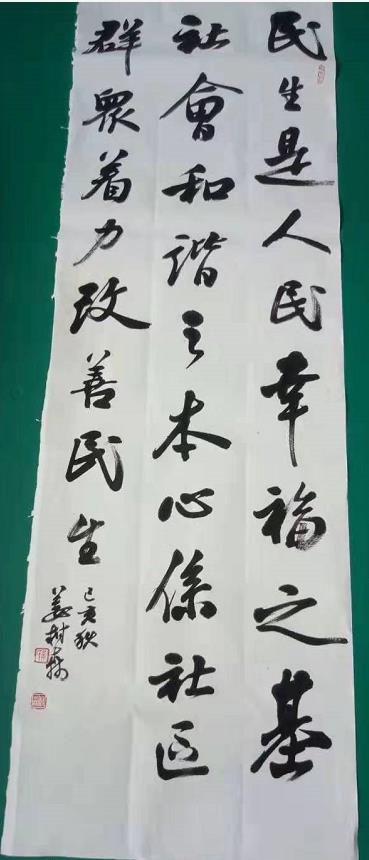 民生是人民幸福之基
社會和谐之本心係社区
群眾着力改善民生
己亥秋
姜树森